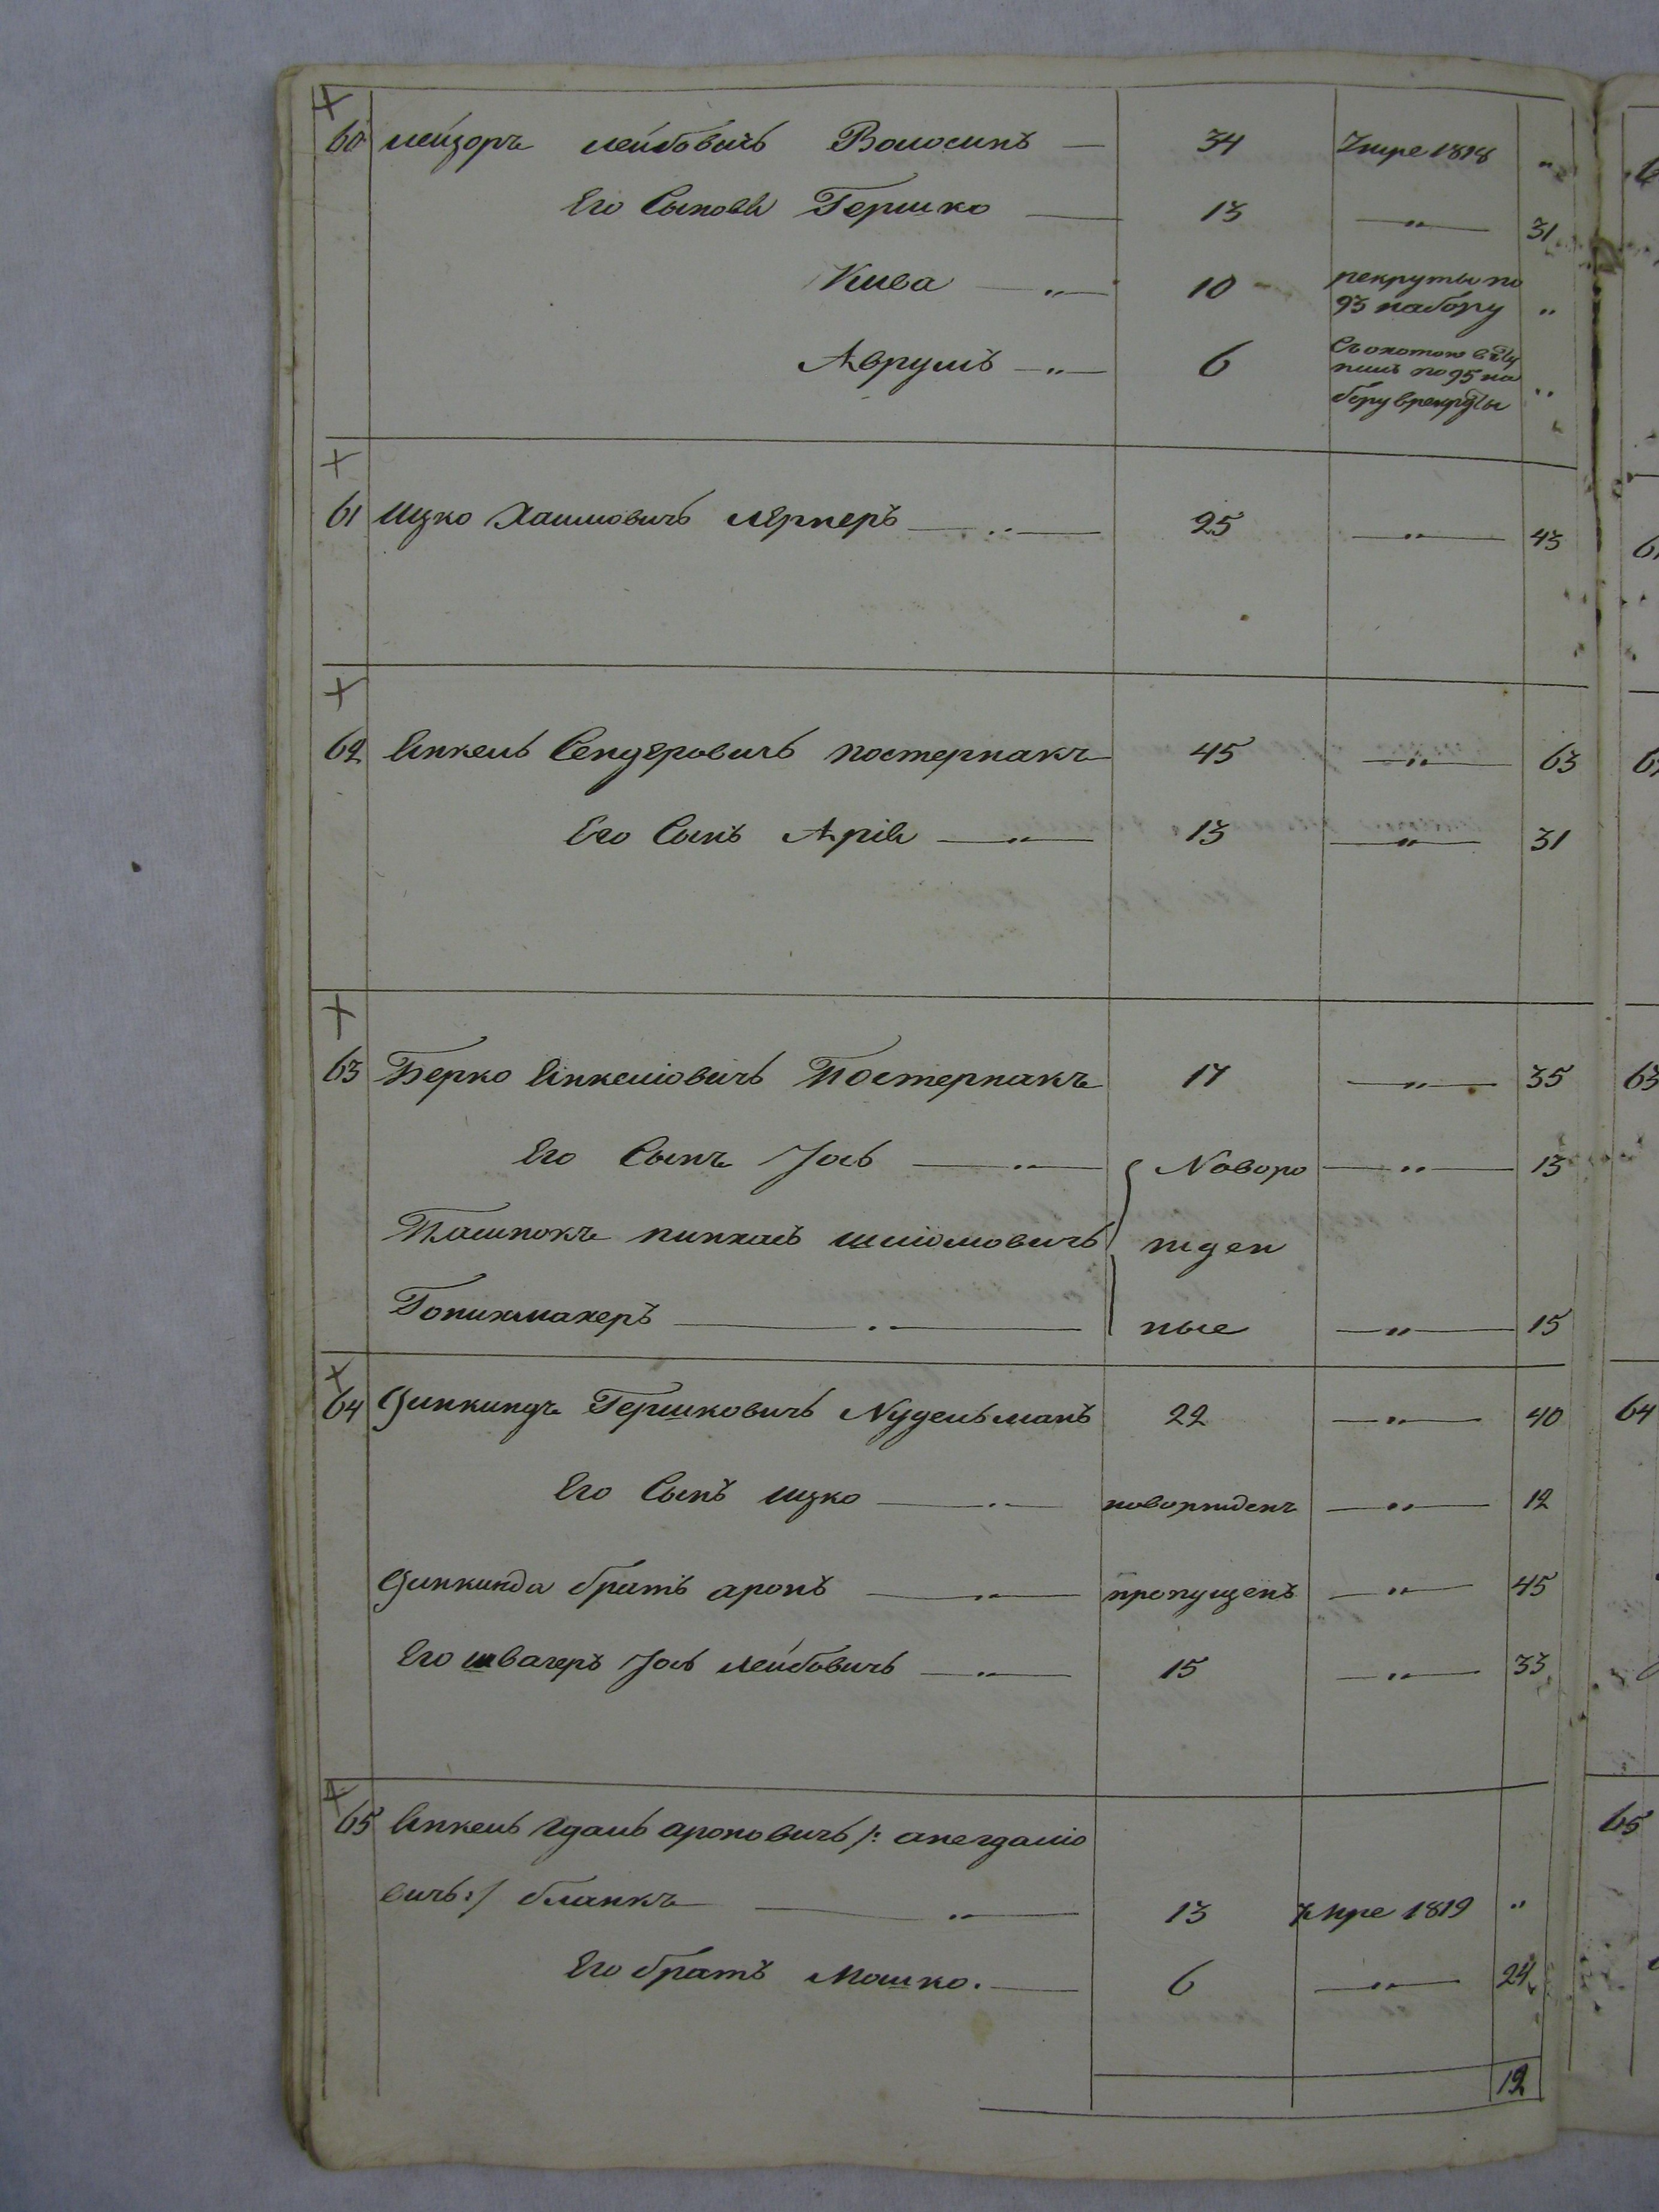 60 Лейзоръ Лейбовичъ Волосинъ — 34 Умре 1818 „
Его Сыновья Гершко — 13 — „ — 31
Кива — „ — 10 рекруты по 93 набору „
Аврумъ — „ — 6 Съ охотою всту
пилъ по 95 на
бору в рекруты „
61 Ицко Хаимовичъ Лернеръ — „ — 25 — „ — 43
62 Янкель Сендеровичъ Постернакъ 45 — „ — 63
Его Сынъ Арія — „ — 13 — „ — 31
63 Берко Янкеліовичъ Постернакъ 17 — „ — 35
Его Сынъ Іось — „ — Новоро — „ — 13
Пасинокъ Пинхасъ Шліомовичъ жден
Гопихмахеръ — „ — ные — „ — 15
64 Зинкиндъ Гершковичъ Нудельманъ 22 — „ — 40
Его Сынъ Ицко — „ — новорожденъ — „ — 12
Зинкинда братъ Аронъ — „ — пропущенъ — „ — 45
Его швагеръ Іось Лейбовичъ — „ — 15 — „ — 33
65 Янкель Гдаль Ароновичъ /: а не гдаліо
вичъ :/ Бланкъ — „ — 13 Умре 1819 „
Его братъ Мошко. — 6 — „ — 24
12